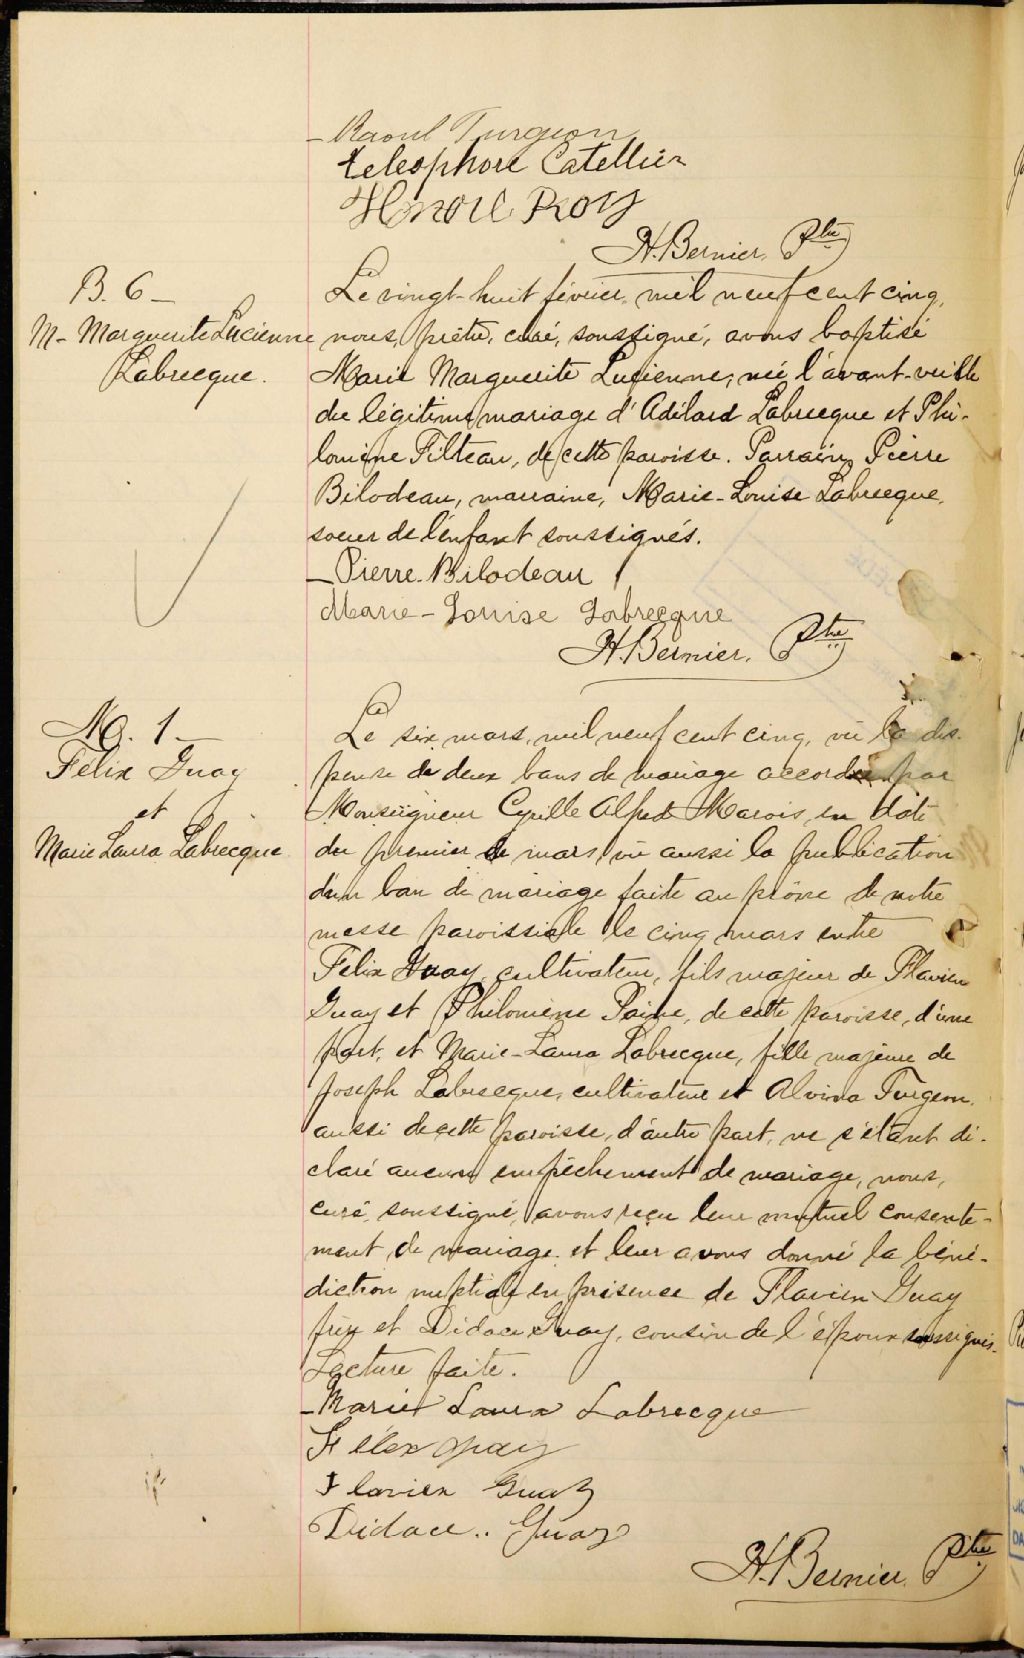 Raoul Turgeon
télésphore Catellier
Honoré Roy
H. Bernier, Ptre
B. 6 —
M- Marguerite Lucienne
Labrecque.
Le vingt-huit février, mil neuf cent cinq,
nous, prêtre, curé, soussigné, avons baptisé
Marie Marguerite Lucienne, née l'avant-veille
du légitime mariage d'Adélard Labrecque et Phi-
lomène Filteau, de cette paroisse. Parrain, Pierre
Bilodeau, marraine, Marie-Louise Labrecque,
soeur de l'enfant soussignés.
— Pierre Bilodeau
Marie-Louise Labrecque
H. Bernier, Ptre
M. 1 —
Félix Guay
et
Marie Laura Labrecque
Le six mars, mil neuf cent cinq, vu la dis-
pense de deux bans de mariage accordée par
Monseigneur Cyrille Alfred Marois, en date
du premier de mars, vu aussi la publication
d'un ban de mariage faite au prône de notre
messe paroissiale le cinq mars entre
Félix Guay, cultivateur, fils majeur de Flavien
Guay et Philomène Paine, de cette paroisse, d'une
part, et Marie-Laura Labrecque, fille majeure de
Joseph Labrecque, cultivateur et Alvina Turgeon,
aussi de cette paroisse, d'autre part, ne s'étant dé-
claré aucun empêchement de mariage, nous,
curé, soussigné, avons reçu leur mutuel consente-
ment de mariage et leur avons donné la béné-
diction nuptiale en présence de Flavien Guay
frère et Didace Guay, cousin de l'époux soussignés.
Lecture faite.
— Marie Laura Labrecque
Félix Guay
Flavien Guay
Didace.. Guay
H. Bernier, Ptre